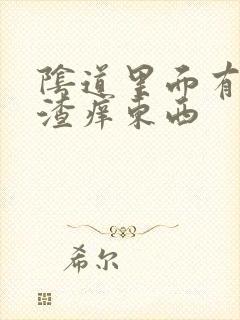 陰道里面有
渣痒东西
希尔